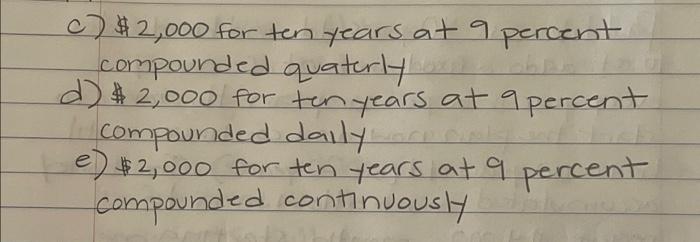 c) $2,000 for ten years at 9 percent
compounded quaterly
d) $ 2,000 for ten years at 9 percent
compounded daily
e) $2,000 for ten years at 9 percent
compounded continuously